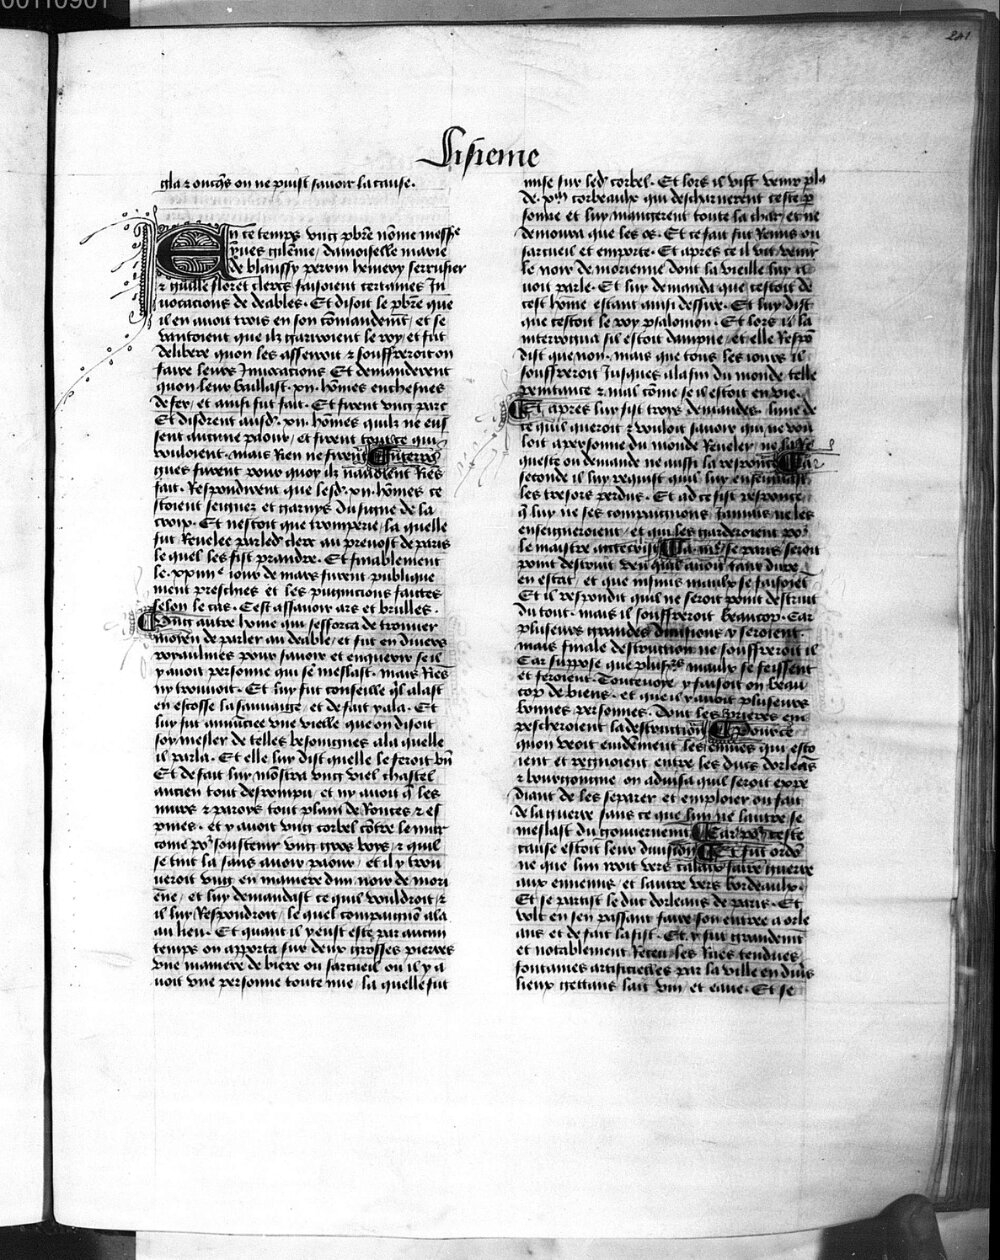 00110901
241
Sisieme
gla et oncques on ne puist savoir la cause.
En ce temps ung pbre nomme messe
yves gileme, damoiselle marie
de blaussy perrin hemery serrurier
et guille floret clercs faisoient certaines In
vocacions de deables. Et disoit le pbre que
il en avoit trois en son commandement, et se
vantoient que ilz gariroient le roy et fut
delibere quon les asserroit et souffreroit on
faire leurs Invocacions Et demanderent
quon leur baillast .xii. hommes enchesnes
de fer, et ainsi fut fait. Et firent ung parc
Et disdrent ausd. xii. hommes quilz ne eus
sent aucune paour, et firent tout ce qui
vouloient, mais Rien ne firent Interro
gues furent pour quoy ilz navoient Riens
fait. Respondirent que lesd. xii. hommes ce
stoient seigner et garnys du signe de la
croix. Et nestoit que tromperie, la quelle
fut Revelee par led clerc au prevost de paris
le quel les fist prandre. Et finablement
le xxiiii e iour de mars furent publique
ment presches et les pugnicions faictes
selon le cas. Cest assavoir ars et brulles.
Ung autre home qui sefforca de trouver
moyen de parler au deable, et fut en divers
royaulmes pour savoir et enquerir se il
y avoit personne qui sen meslast. mais Riens
ny trouvoit. Et luy fut conseille ql alast
en escosse la sauvaige, et de fait y ala. Et
luy fut annuncee une vielle que on disoit
soy mesler de telles besongnes a la quelle
il parla. Et elle luy dist quelle le feroit bn
Et de fait luy monstra ung viel chastel
ancien tout desrompu et ny avoit q les
murs et parois tout plain de Ronces et es
pines. et y avoit ung corbel contre le mur
come por soustenir ung gros boys, et quil
se tint la sans avoir paour, et il y trou
veroit ung en maniere dun noir de mori
ene, et luy demandast ce quil vouldroit et
il luy Respondroit, le quel compaignon ala
au lieu. Et quant il y eust este par aucun
temps on apporta sur deux grosses pierres
une maniere de biere ou sarcueil ou il y a
voit une personne toute nue, la quelle fut
mise sur led corbel. Et lors il vist venir pls
de .xii. corbeaulx qui descharnerent ceste per
sonne et luy mangerent toute la char et ne
demoura que les os. Et ce fait fut Remis ou
sarcueil et emporte. Et apres ce il vit venir
le noir de morienne dont la vieille luy a
voit parle. Et luy demanda que cestoit de
cest homme estant ainsi dessire. Et luy dist
que cestoit le roy psalomon. Et lors il la
interrogua sil estoit dampne, et elle Respo
dist que non, mais que tous les iours il
souffreroit Jusques a la fin du monde telle
penitance et mal come se il estoit en vie.
Et apres luy fist troys demandes. lune de
ce quil queroit et vouloit savoir qui ne vou
loit a personne du monde Reveler, ne la Re
queste ou demande ne aussi la responce Car
seconde il luy requist quil luy enseignast
les tresors perdus. Et ad ce fist responce
q luy ne ses compaignons Jamais ne les
enseigneroient, et qui les garderoient por
le maistre antecrist La .iii. se paris seroit
point destruit veu quil avoit tant dure
en estat, et que infinis maulx se faisoient
Et il respondit quil ne seroit point destruit
du tout. mais il souffreroit beaucop. Car
plusieurs grandes divisions y seroient.
mais finale destruction ne souffreroit il
Car suppose que plusrs maulx se feissent
et feroient. Toutevoye y faisoit on beau
cop de biens, et que il y avoit plusieurs
bonnes personnes. Dont les prieres em
pescheroient la destruction Pour ce
quon veoit evidement les envies qui esto
ient et regnoient entre les ducs dorleans
et bourgongne on advisa quil seroit expe
diant de les separer et emploier ou fait
de la guerre sans ce que lun ne lautre se
meslast du gouvernement Car por ceste
cause estoit leur division Et fut ordo
ne que lun iroit vers calais faire guerre
aux ennemis, et lautre vers bordeaulx.
Et se partist le duc dorleans de paris. Et
volt en sen passant faire son entree a orle
ans et de fait la fist. Et y fut grandement
et notablement Receu les Rues tendues
fontaines artificielles par la ville en divers
lieux gettans lait vin, et eaue. Et se